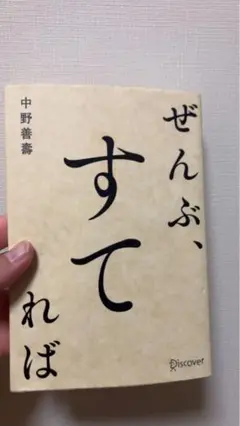 ぜんぶ、
すて
れば
中野善壽
Discover